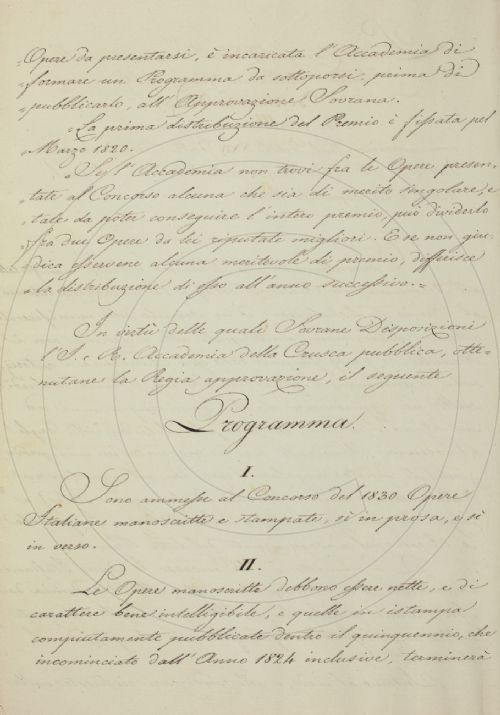 „Opere da presentarsi, è incaricata l'Accademia di
„formare un Programma da sottoporsi, prima di
„pubblicarlo, all'Approvazione Sovrana.
„La prima distribuzione del Premio è fissata pel
„Marzo 1820.
„Se l'Accademia non trovi fra le Opere presen„
„tate al Concorso alcuna che sia di merito singolare, e
„tale da poter conseguire l'intero premio, può dividerlo
„fra due Opere da lei riputate migliori. E se non giu„
„dica esservene alcuna meritevole di premio, differisce
„la distribuzione di esso all'anno successivo.„
In virtù delle quali Sovrane Disposizioni
l'I. e R. Accademia della Crusca pubblica, otte„
nutane la Regia approvazione, il seguente
Programma.
I.
Sono ammesse al Concorso del 1830 Opere
Italiane manoscritte e stampate, sì in prosa, e sì
in verso.
II.
Le Opere manoscritte debbono essere nette, e di
carattere bene intelligibile, e quelle in istampa
compiutamente pubblicate dentro il quinquennio, che
incominciato dall'Anno 1824 inclusive, terminerà